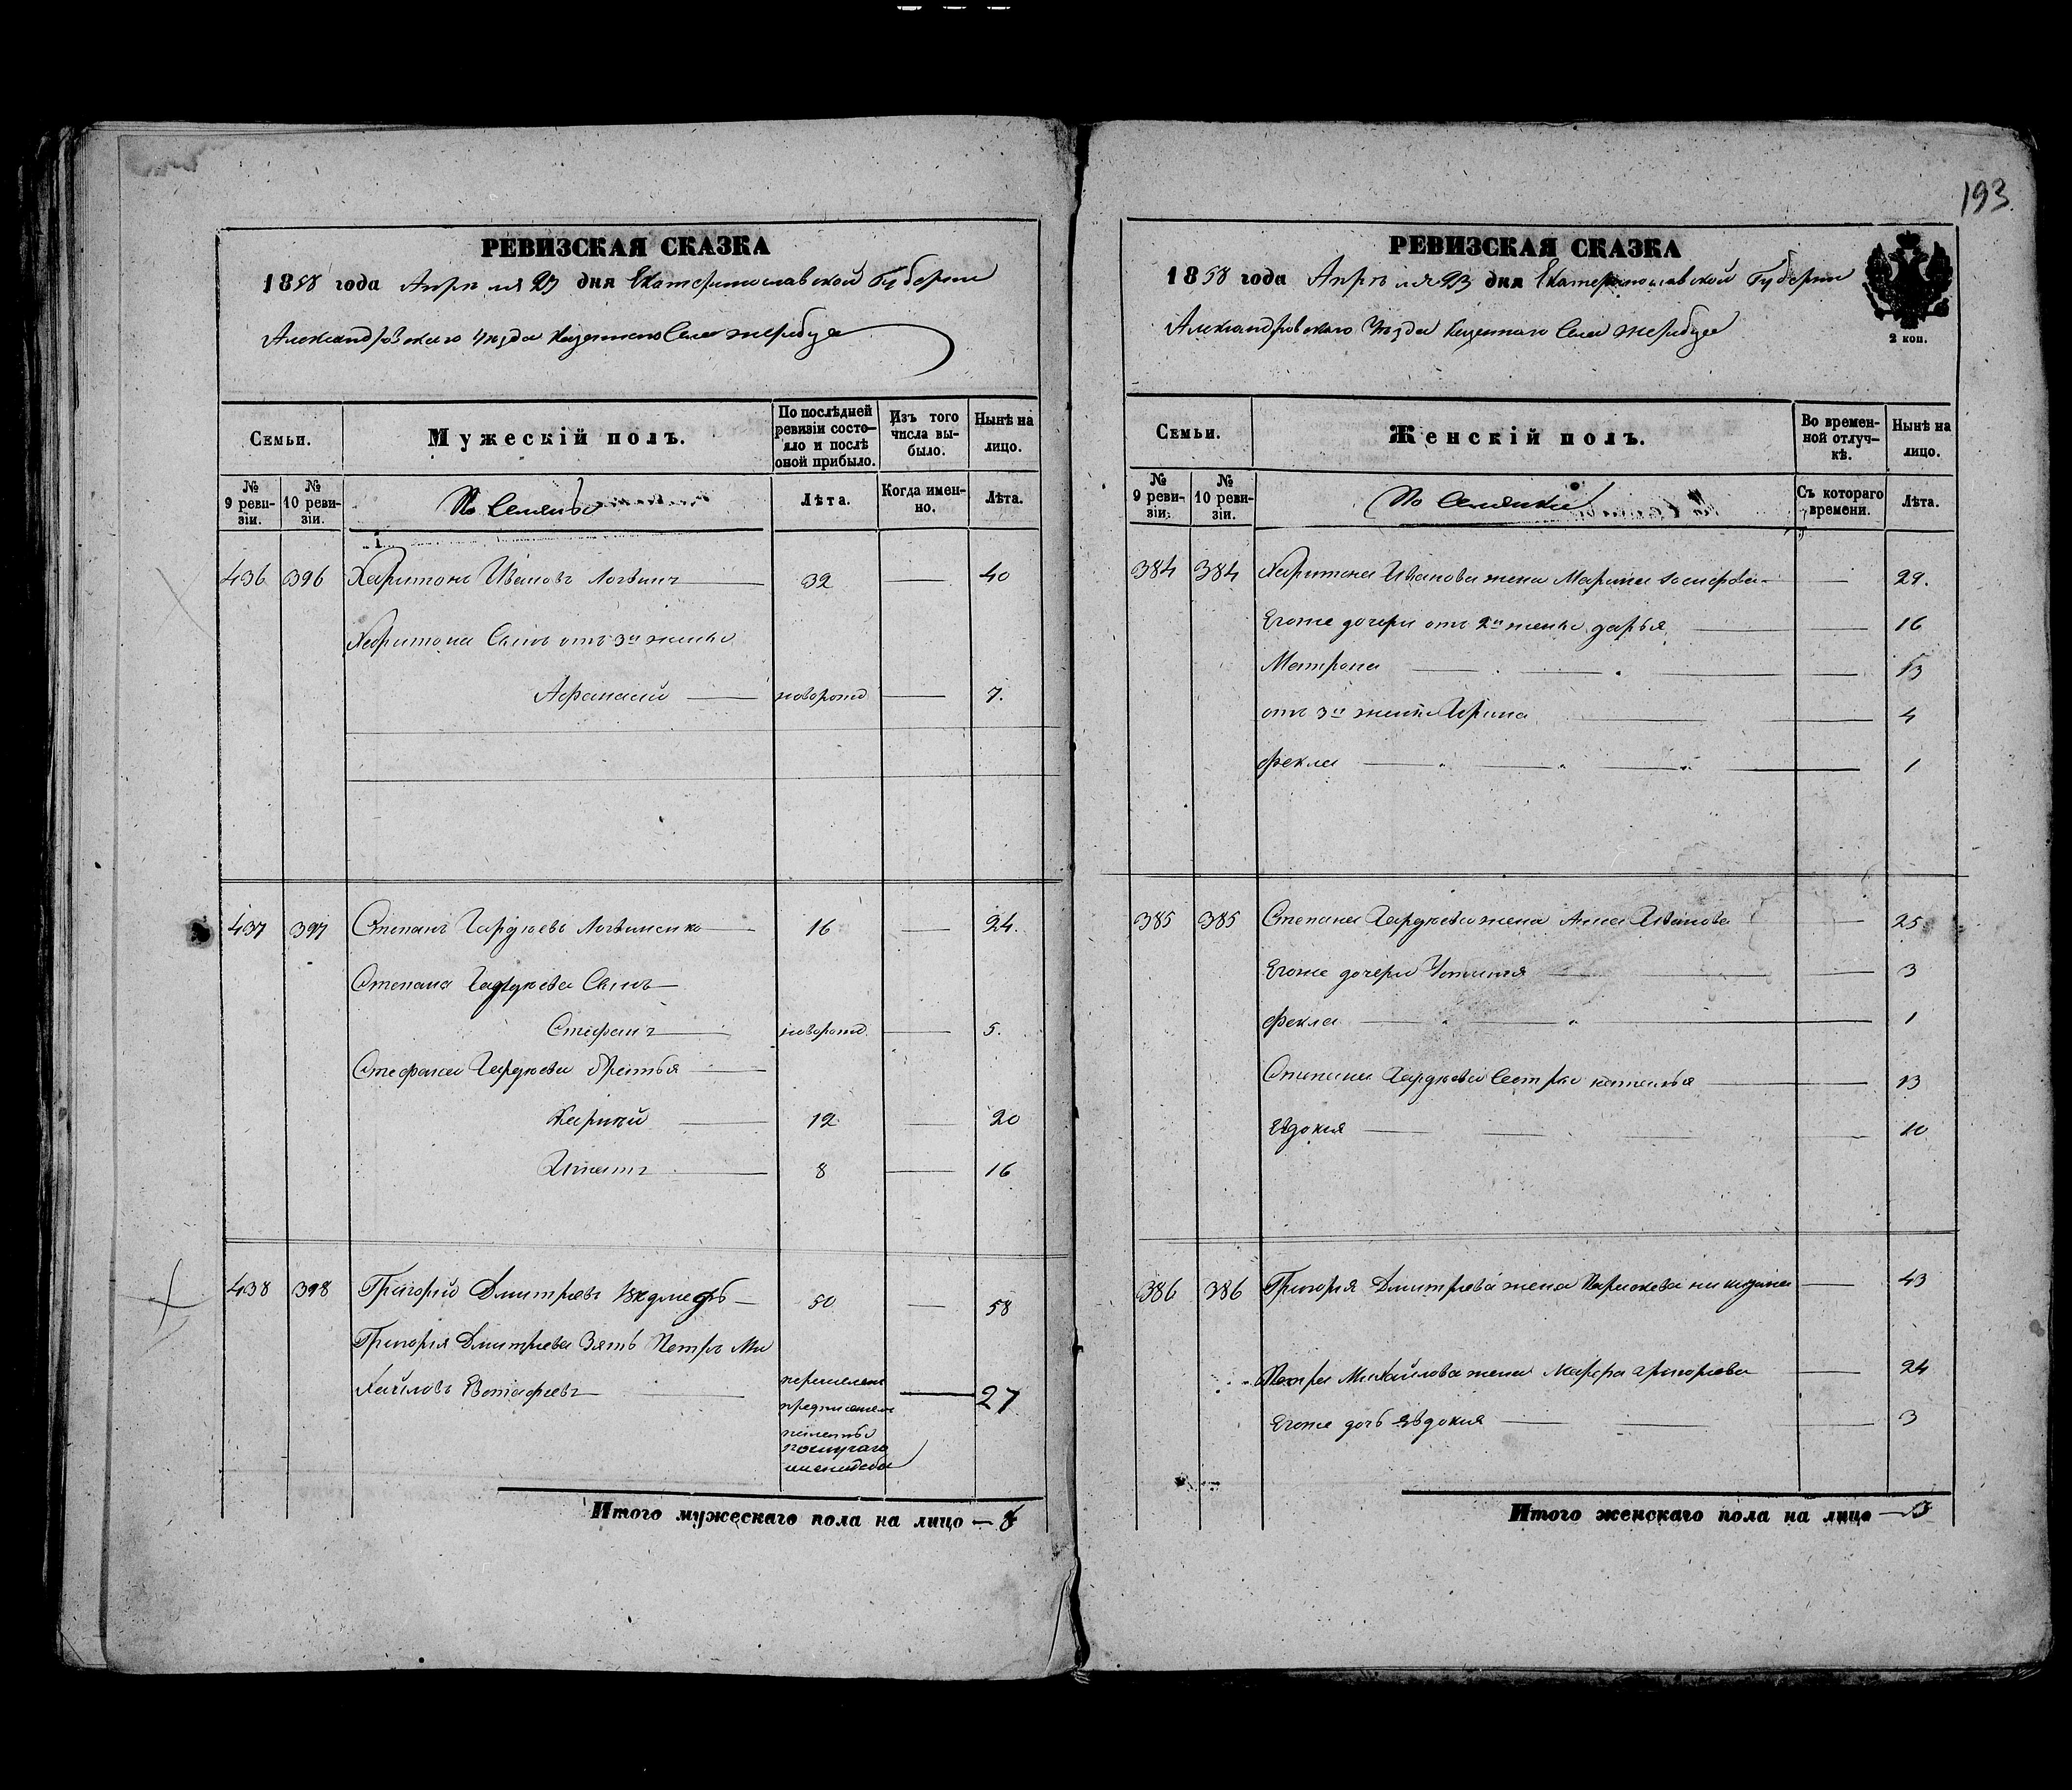 193.
РЕВИЗСКАЯ СКАЗКА
1858 года Апреля 23 дня Екатеринославской Губернии
Александровскаго Уезда Казеннаго Села Жеребца
Семьи.
Мужескій полъ.
По послѣдней ревизіи состо-яло и послѣ оной прибыло.
Изъ того числа вы-было.
Нынѣ на лицо.
№ 9 реви-зіи.
№ 10 реви-зіи.
Лѣта.
Когда имен-но.
Лѣта.
436 396 Харитонъ Ивановъ 32 — 40
Харитона Сынъ отъ 3й жены
Афанасій — новорожд — 7.
437 397 Степанъ 16 — 24.
Степана Сынъ —
Стефанъ — новорожд — 5.
Стефана братья —
12 — 20
Игнатъ 8 — 16
438 398 Григорій Дмитріевъ — 50 — 58
Григорія Дмитріева Зять Петръ Ми
хайловъ Евстафіевъ — 27
Итого мужескаго пола на лицо — 8
РЕВИЗСКАЯ СКАЗКА
1858 года Апреля 23 дня Екатеринославской Губернии
Александровскаго Уезда Казеннаго Села Жеребца
2 коп.
Семьи.
Женскій полъ.
Во времен-ной отлуч-кѣ.
Нынѣ на лицо.
№ 9 реви-зіи.
№ 10 реви-зіи.
Съ котораго времени.
Лѣта.
384 384 Харитона Иванова жена Марина Іосифова — 29.
Егоже дочери отъ 2й жены дарья — 16
Матрона — 13
отъ 3й жены Ирина — 4
фекла — 1
385 385 Степана жена Анна Иванова — 25
Егоже дочери Устинія — 3
фекла — 1
Степана Сестры наталья — 13
Евдокия — 10
386 386 Григорія Дмитріева жена — 43
Петра Михайлова жена Марфа григорьева — 24
Егоже дочь евдокия — 3
Итого женскаго пола на лицо —